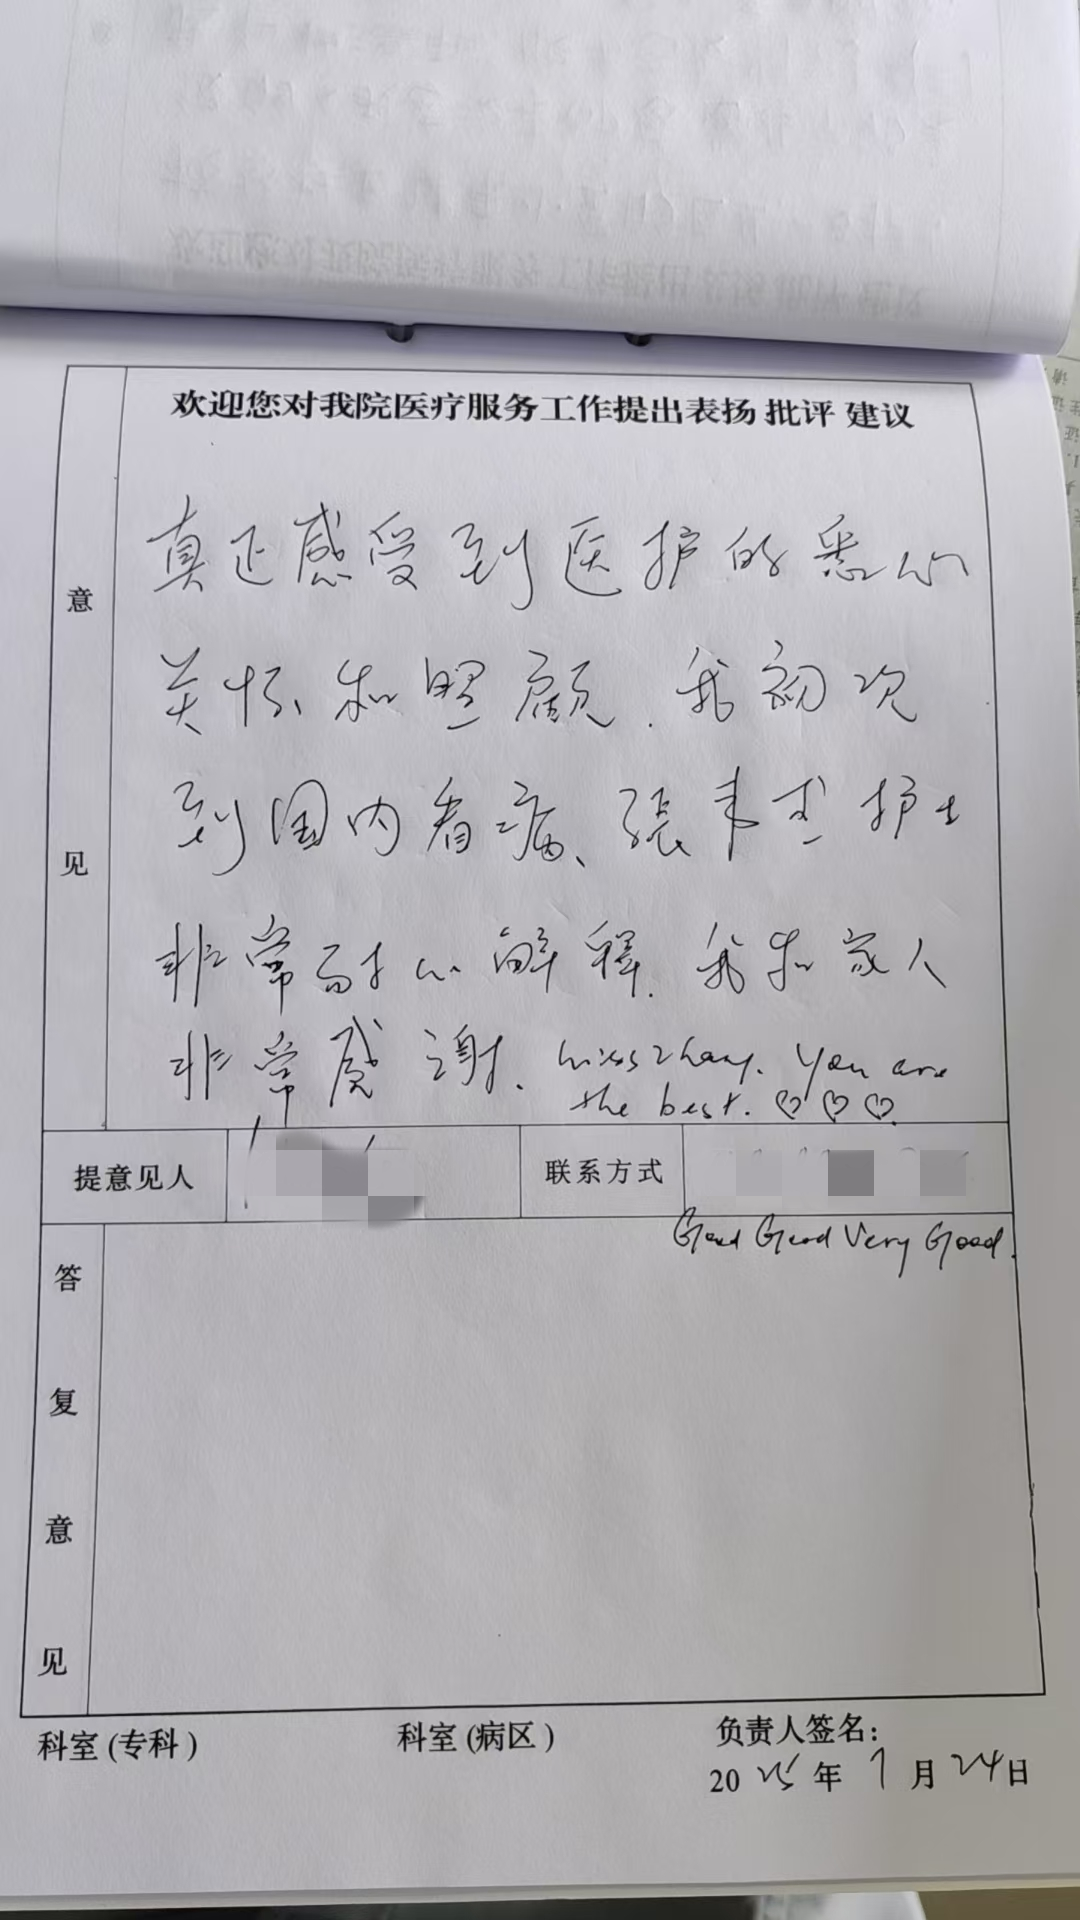 欢迎您对我院医疗服务工作提出表扬 批评 建议
意见
真正感受到医护的悉心
关怀和照顾.我初次
到国内看病、張 护士
非常耐心解釋.我和家人
非常感谢. Miss Zhang. You are
the best. ♡♡♡
提意见人
联系方式
Good Good Very Good.
答复意见
科室(专科) 科室(病区) 负责人签名:
2025年7月24日